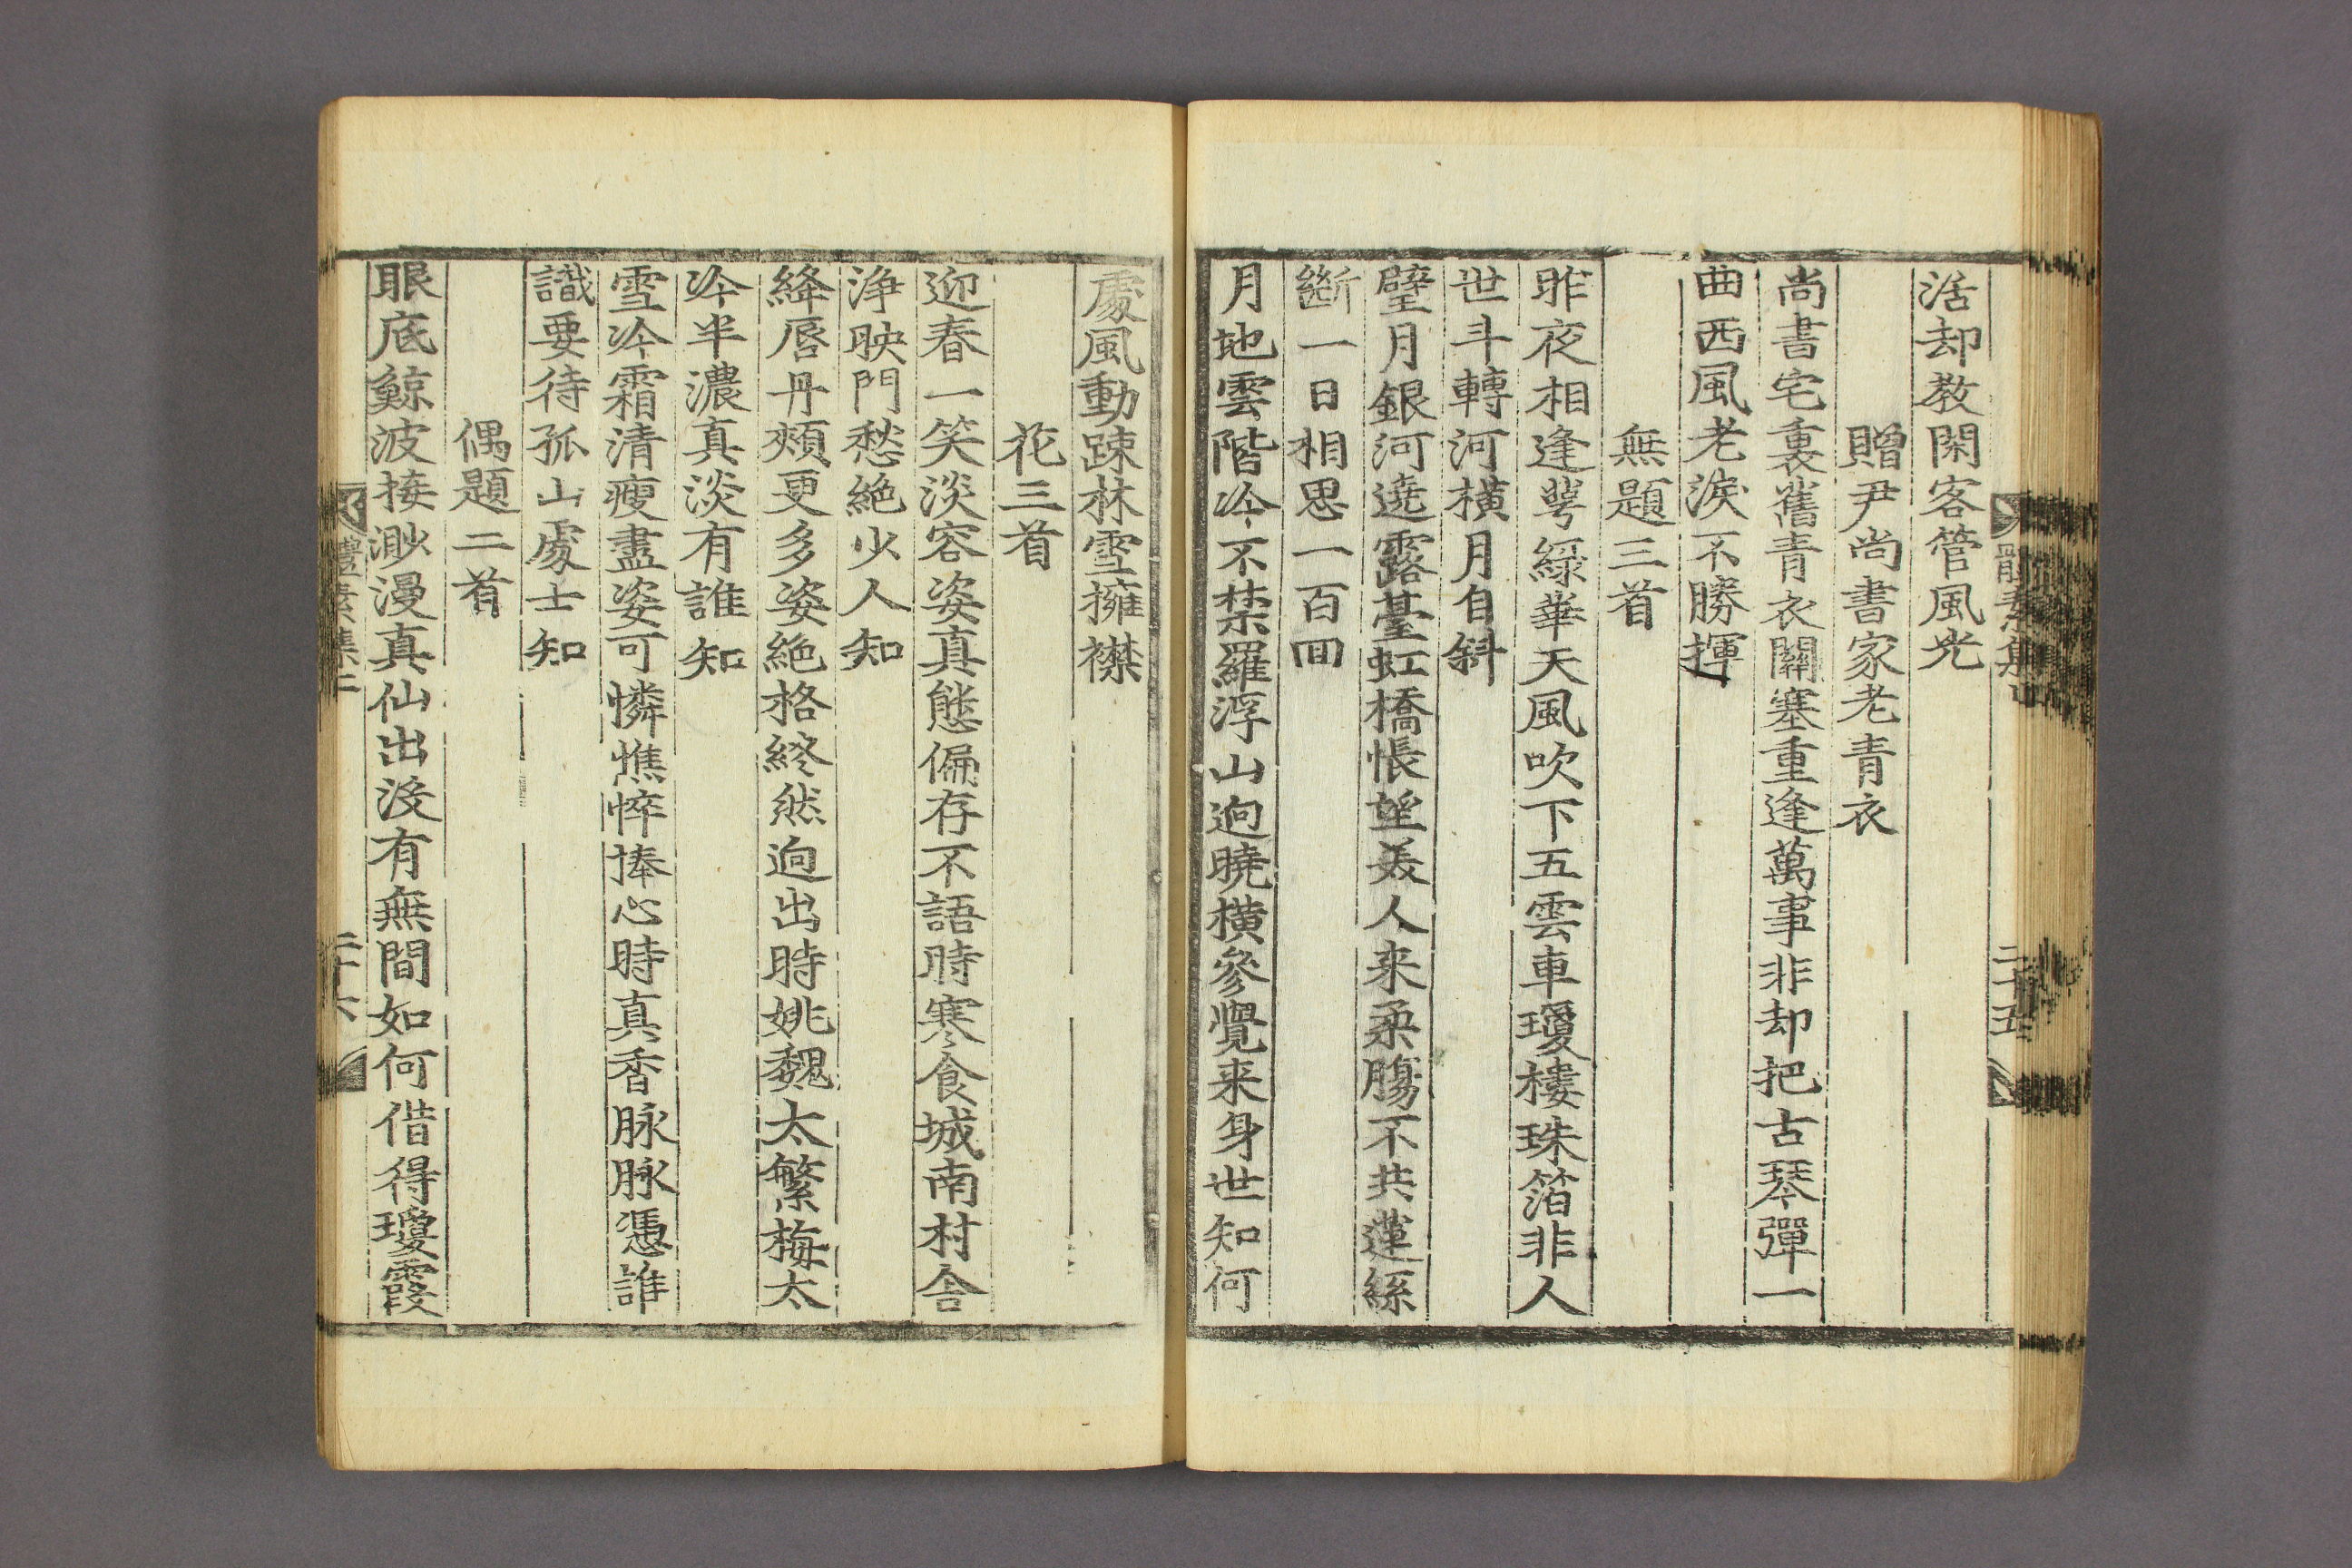 活却教閑客管風光
贈尹尚書家老青衣
尚書宅裏舊青衣關塞重逢萬事非却把古琴彈一
曲西風老淚不勝揮
無題三首
昨夜相逢萼綠華天風吹下五雲車瓊樓珠箔非人
世斗轉河橫月自斜
璧月銀河遶露臺虹橋悵望美人來柔膓不共蓮絲
斷一日相思一百回
月地雲階冷不禁羅浮山逈曉橫參覺来身世知何
處風動踈林雪擁襟
花三首
迎春一笑淡容姿真態偏存不語時寒食城南村舍
淨映門愁絶少人知
絳唇丹頰更多姿絶格終然逈出時姚魏太繁梅太
冷半濃真淡有誰知
雪冷霜清瘦盡姿可憐憔悴捧心時真香脉脉憑誰
識要待孤山處士知
偶題二首
眼底鯨波接渺漫真仙出没有無間如何借得瓊霞
體素集上
二十五
體素集上
二十六